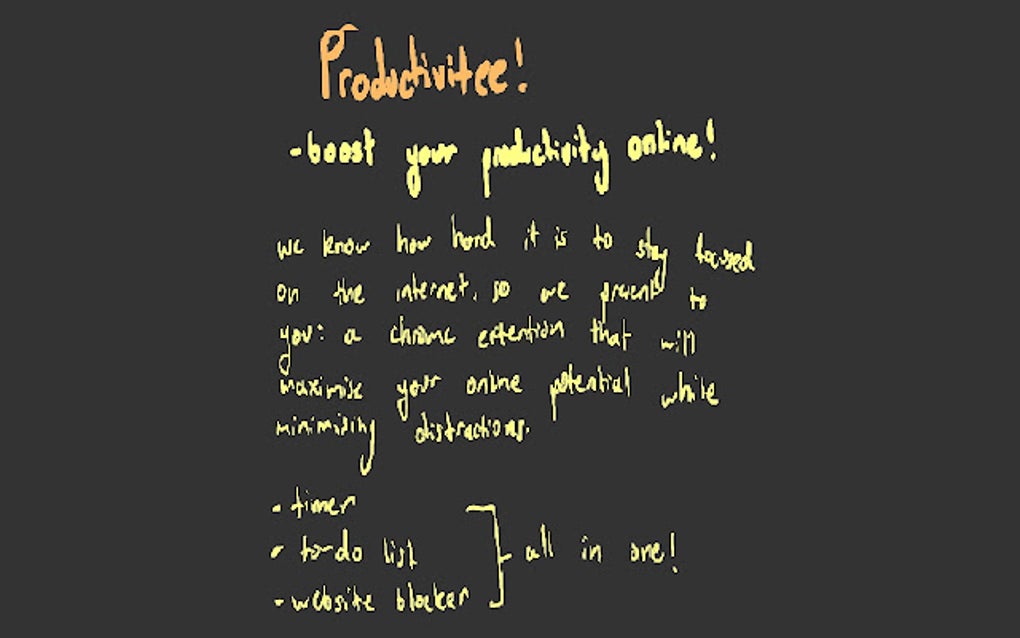 Productivitee!
-boost your productivity online!
we know how hard it is to stay focused
on the internet, so we present to
you: a chrome extention that will
maximise your online potential while
minimising distractions.
- timer
- to-do list
- website blocker
all in one!